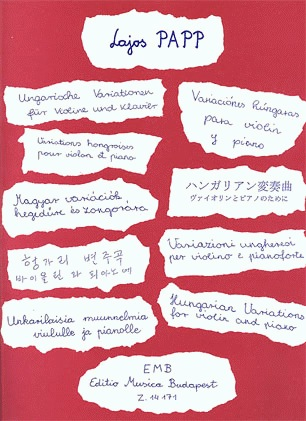 Lajos PAPP
Ungarische Variationen
für Violine und Klavier
Variaciónes húngaras
para violin
y piano
Variations hongroises
pour violon et piano
Magyar variációk
hegedűre és zongorára
ハンガリアン変奏曲
ヴァイオリンとピアノのために
헝가리 변주곡
바이올린과 피아노에
Variazioni ungheresi
per violino e pianoforte
Unkarilaisia muunnelmia
viululle ja pianolle
Hungarian Variations
for violin and piano
EMB
Editio Musica Budapest
Z. 14 171